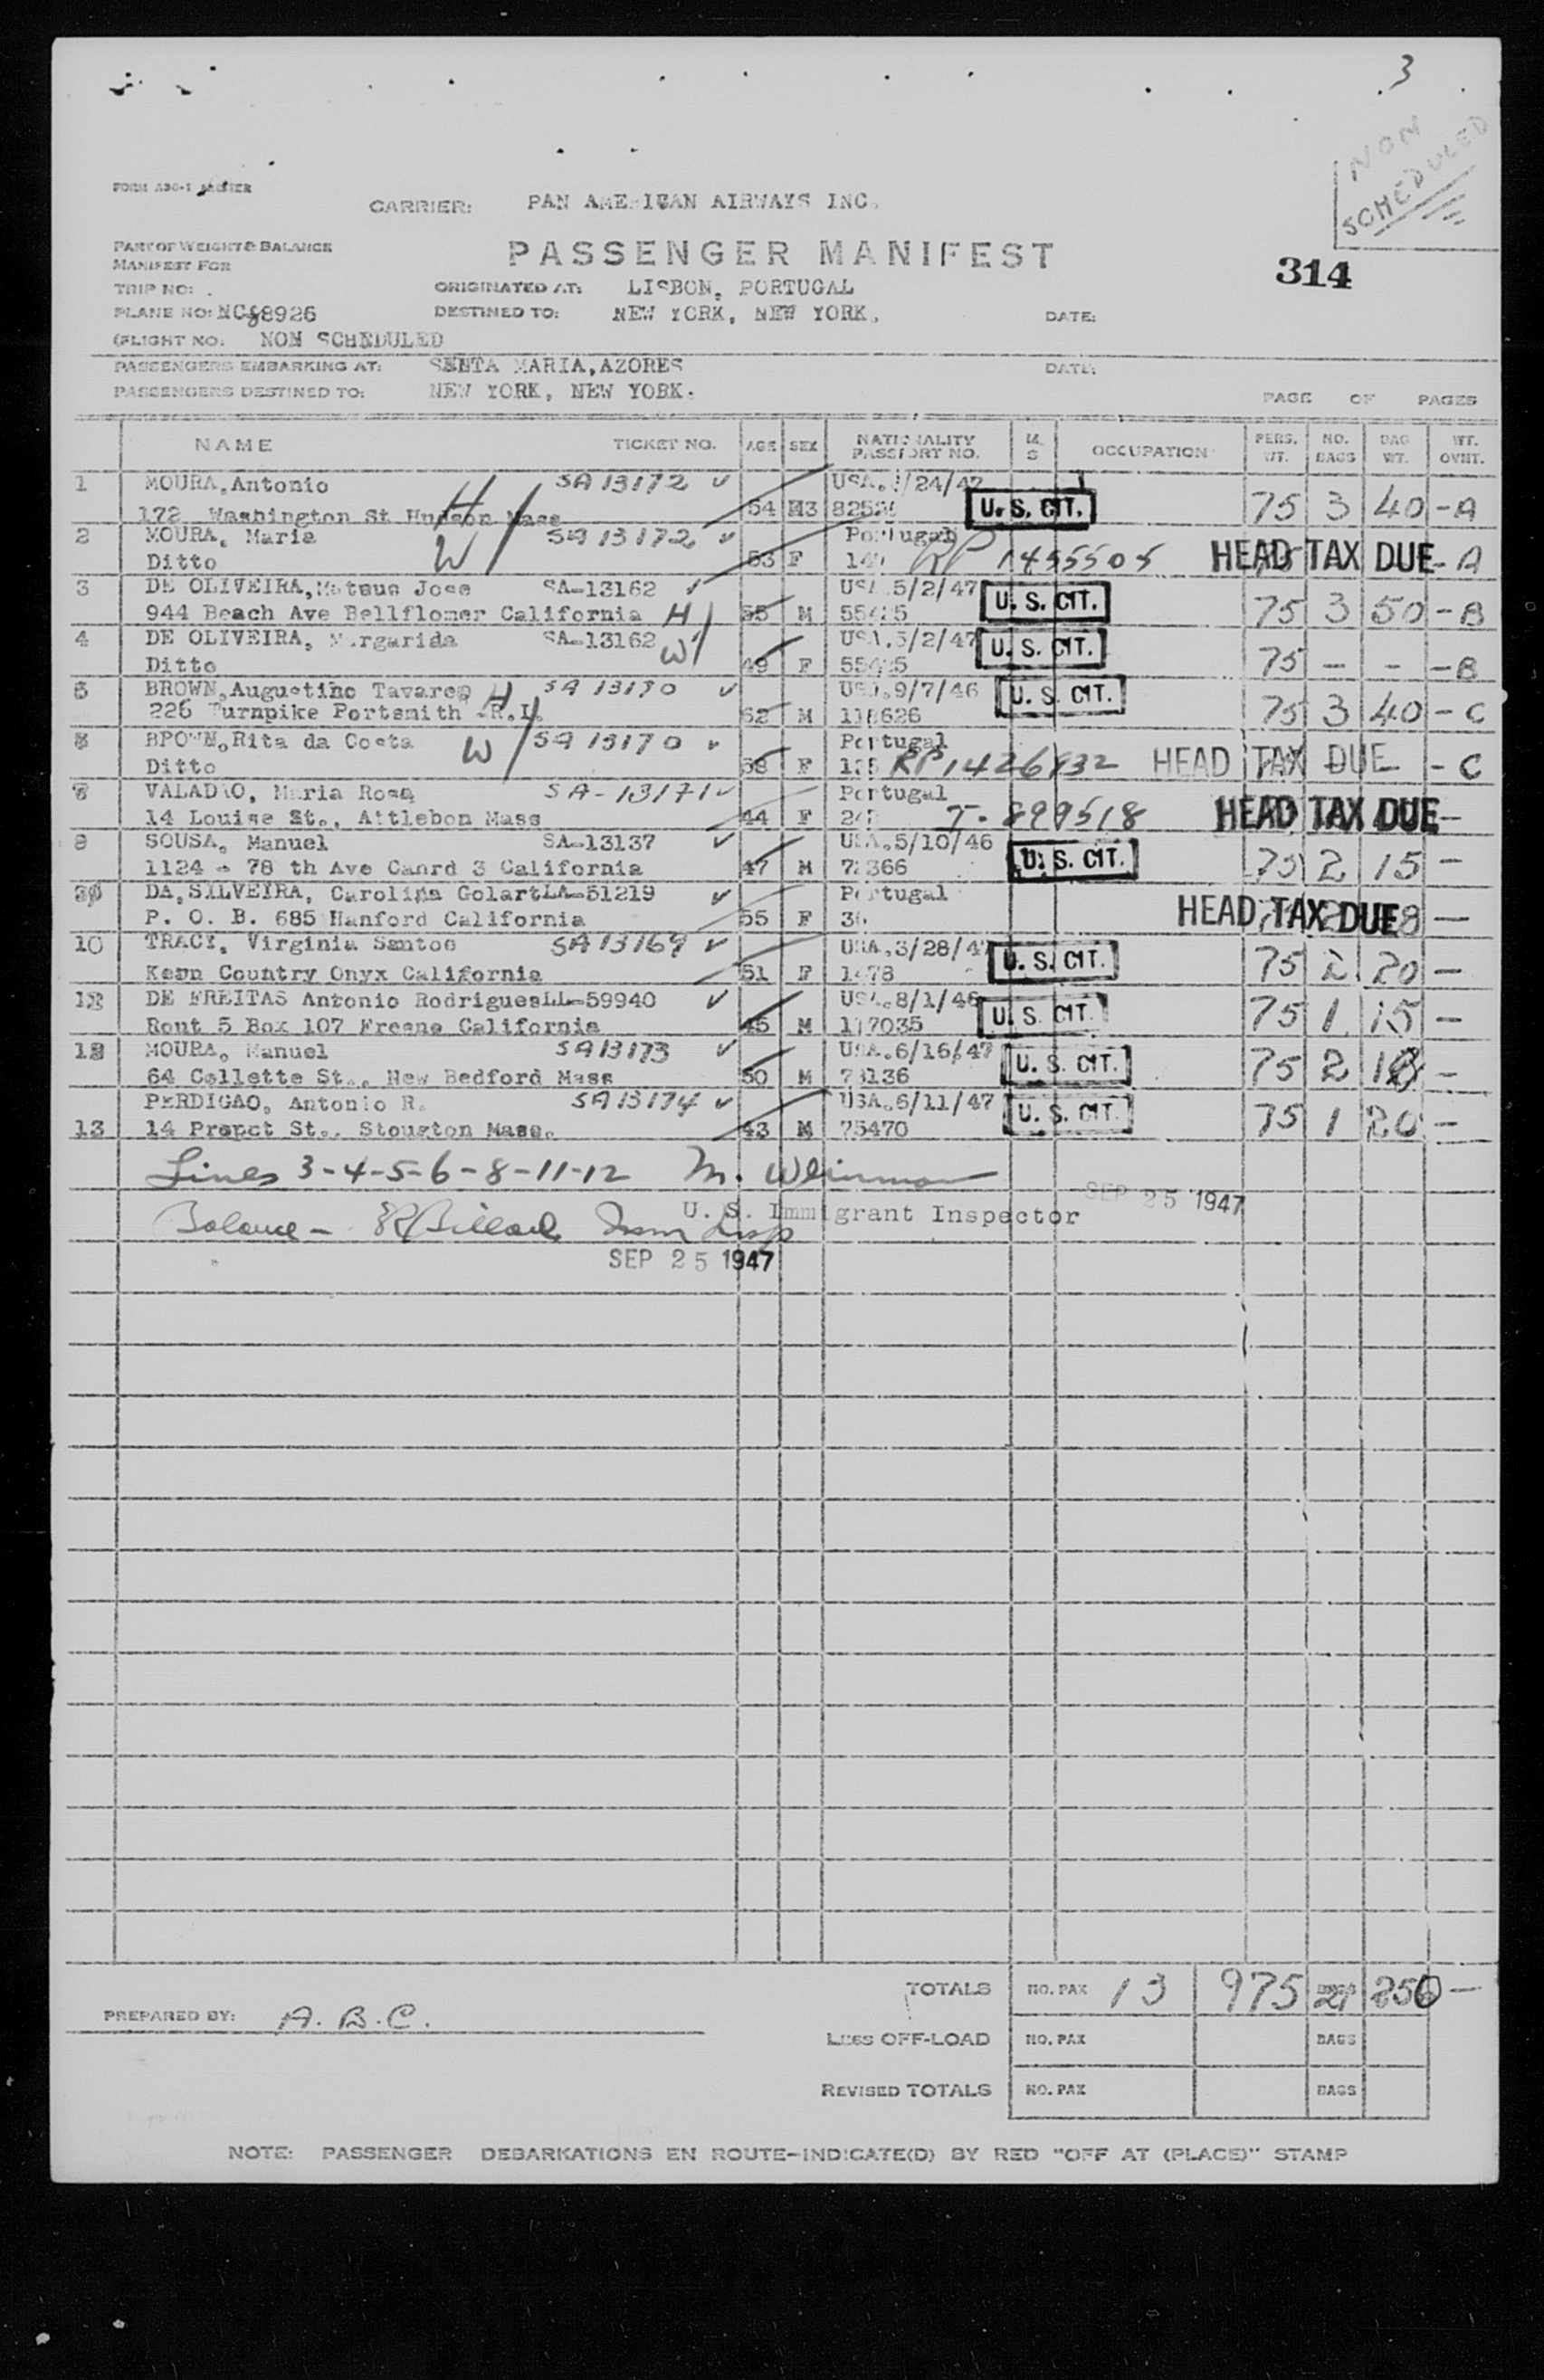 3
NON
SCHEDULED
CARRIER: PAN AMERICAN AIRWAYS INC.
PART OF WEIGHT & BALANCE
PASSENGER MANIFEST
MANIFEST FOR
314
TRIP NO: . ORIGINATED AT: LISBON, PORTUGAL
PLANE NO: NC88926 DESTINED TO: NEW YORK, NEW YORK. DATE:
(FLIGHT NO: NON SCHEDULED
PASSENGERS EMBARKING AT: SENTA MARIA, AZORES DATE:
PASSENGERS DESTINED TO: NEW YORK, NEW YORK.
PAGE OF PAGES
NAME TICKET NO. AGE SEX NATIONALITY PASSPORT NO. M. S OCCUPATION PERS. WT. NO. BAGS BAG WT. WT. OVHT.
1 MOURA, Antonio H SA 13172 ✓ /24/47
172 Washington St Hudson Mass 54 U.S. CIT. 75 3 40 - A
2 MOURA, Maria W SA 13172 ✓ Portugal
Ditto 53 F RP 1455505 HEAD TAX DUE - A
3 DE OLIVEIRA, Mateus Jose SA-13162 ✓ USA.5/2/47
944 Beach Ave Bellflomer California H 55 M U.S. CIT. 75 3 50 - B
4 DE OLIVEIRA, Margarida SA-13162 W USA.5/2/47
Ditto 49 F U.S. CIT. 75 - - - B
5 BROWN, Augustino Tavares H SA 13170 ✓ USA.9/7/46
226 Turnpike Portsmith R.I. 62 M 118626 U.S. CIT. 75 3 40 - C
BROWN, Rita da Costa W SA 13170 ✓ Portugal
Ditto 58 F RP 1426832 HEAD TAX DUE - C
VALADAO, Maria Rosa SA-13171 ✓ Portugal
14 Louise St., Attlebon Mass 44 F T-899518 HEAD TAX DUE -
SOUSA, Manuel SA-13137 ✓ USA.5/10/46
1124 - 78 th Ave Canrd 3 California 47 M U.S. CIT. 75 2 15 -
DA, SILVEIRA, Carolina Golart LA-51219 ✓ Portugal
P. O. B. 685 Hanford California 55 F HEAD TAX DUE -
10 TRACY, Virginia Santos SA 13169 ✓ USA.3/28/47
Kern Country Onyx California 51 F U.S. CIT. 75 2 20 -
DE FREITAS Antonio Rodrigues LL-59940 ✓ USA.8/1/46
Rout 5 Box 107 Fresno California 45 M 117035 U.S. CIT. 75 1 15 -
MOURA, Manuel SA 13173 ✓ USA.6/16/47
64 Collette St., New Bedford Mass 50 M U.S. CIT. 75 2 -
PERDIGAO, Antonio R. SA 13174 ✓ USA.6/11/47
13 14 Propct St., Stougton Mass. 43 M 75470 U.S. CIT. 75 1 20 -
Lines 3-4-5-6-8-11-12 M. Weinman
SEP 25 1947
U. S. Immigrant Inspector
Balance -
SEP 25 1947
TOTALS NO. PAX 13 975 BAGS 21 250 -
PREPARED BY: A.B.C.
LESS OFF-LOAD NO. PAX BAGS
REVISED TOTALS NO. PAX BAGS
NOTE: PASSENGER DEBARKATIONS EN ROUTE-INDICATE(D) BY RED "OFF AT (PLACE)" STAMP